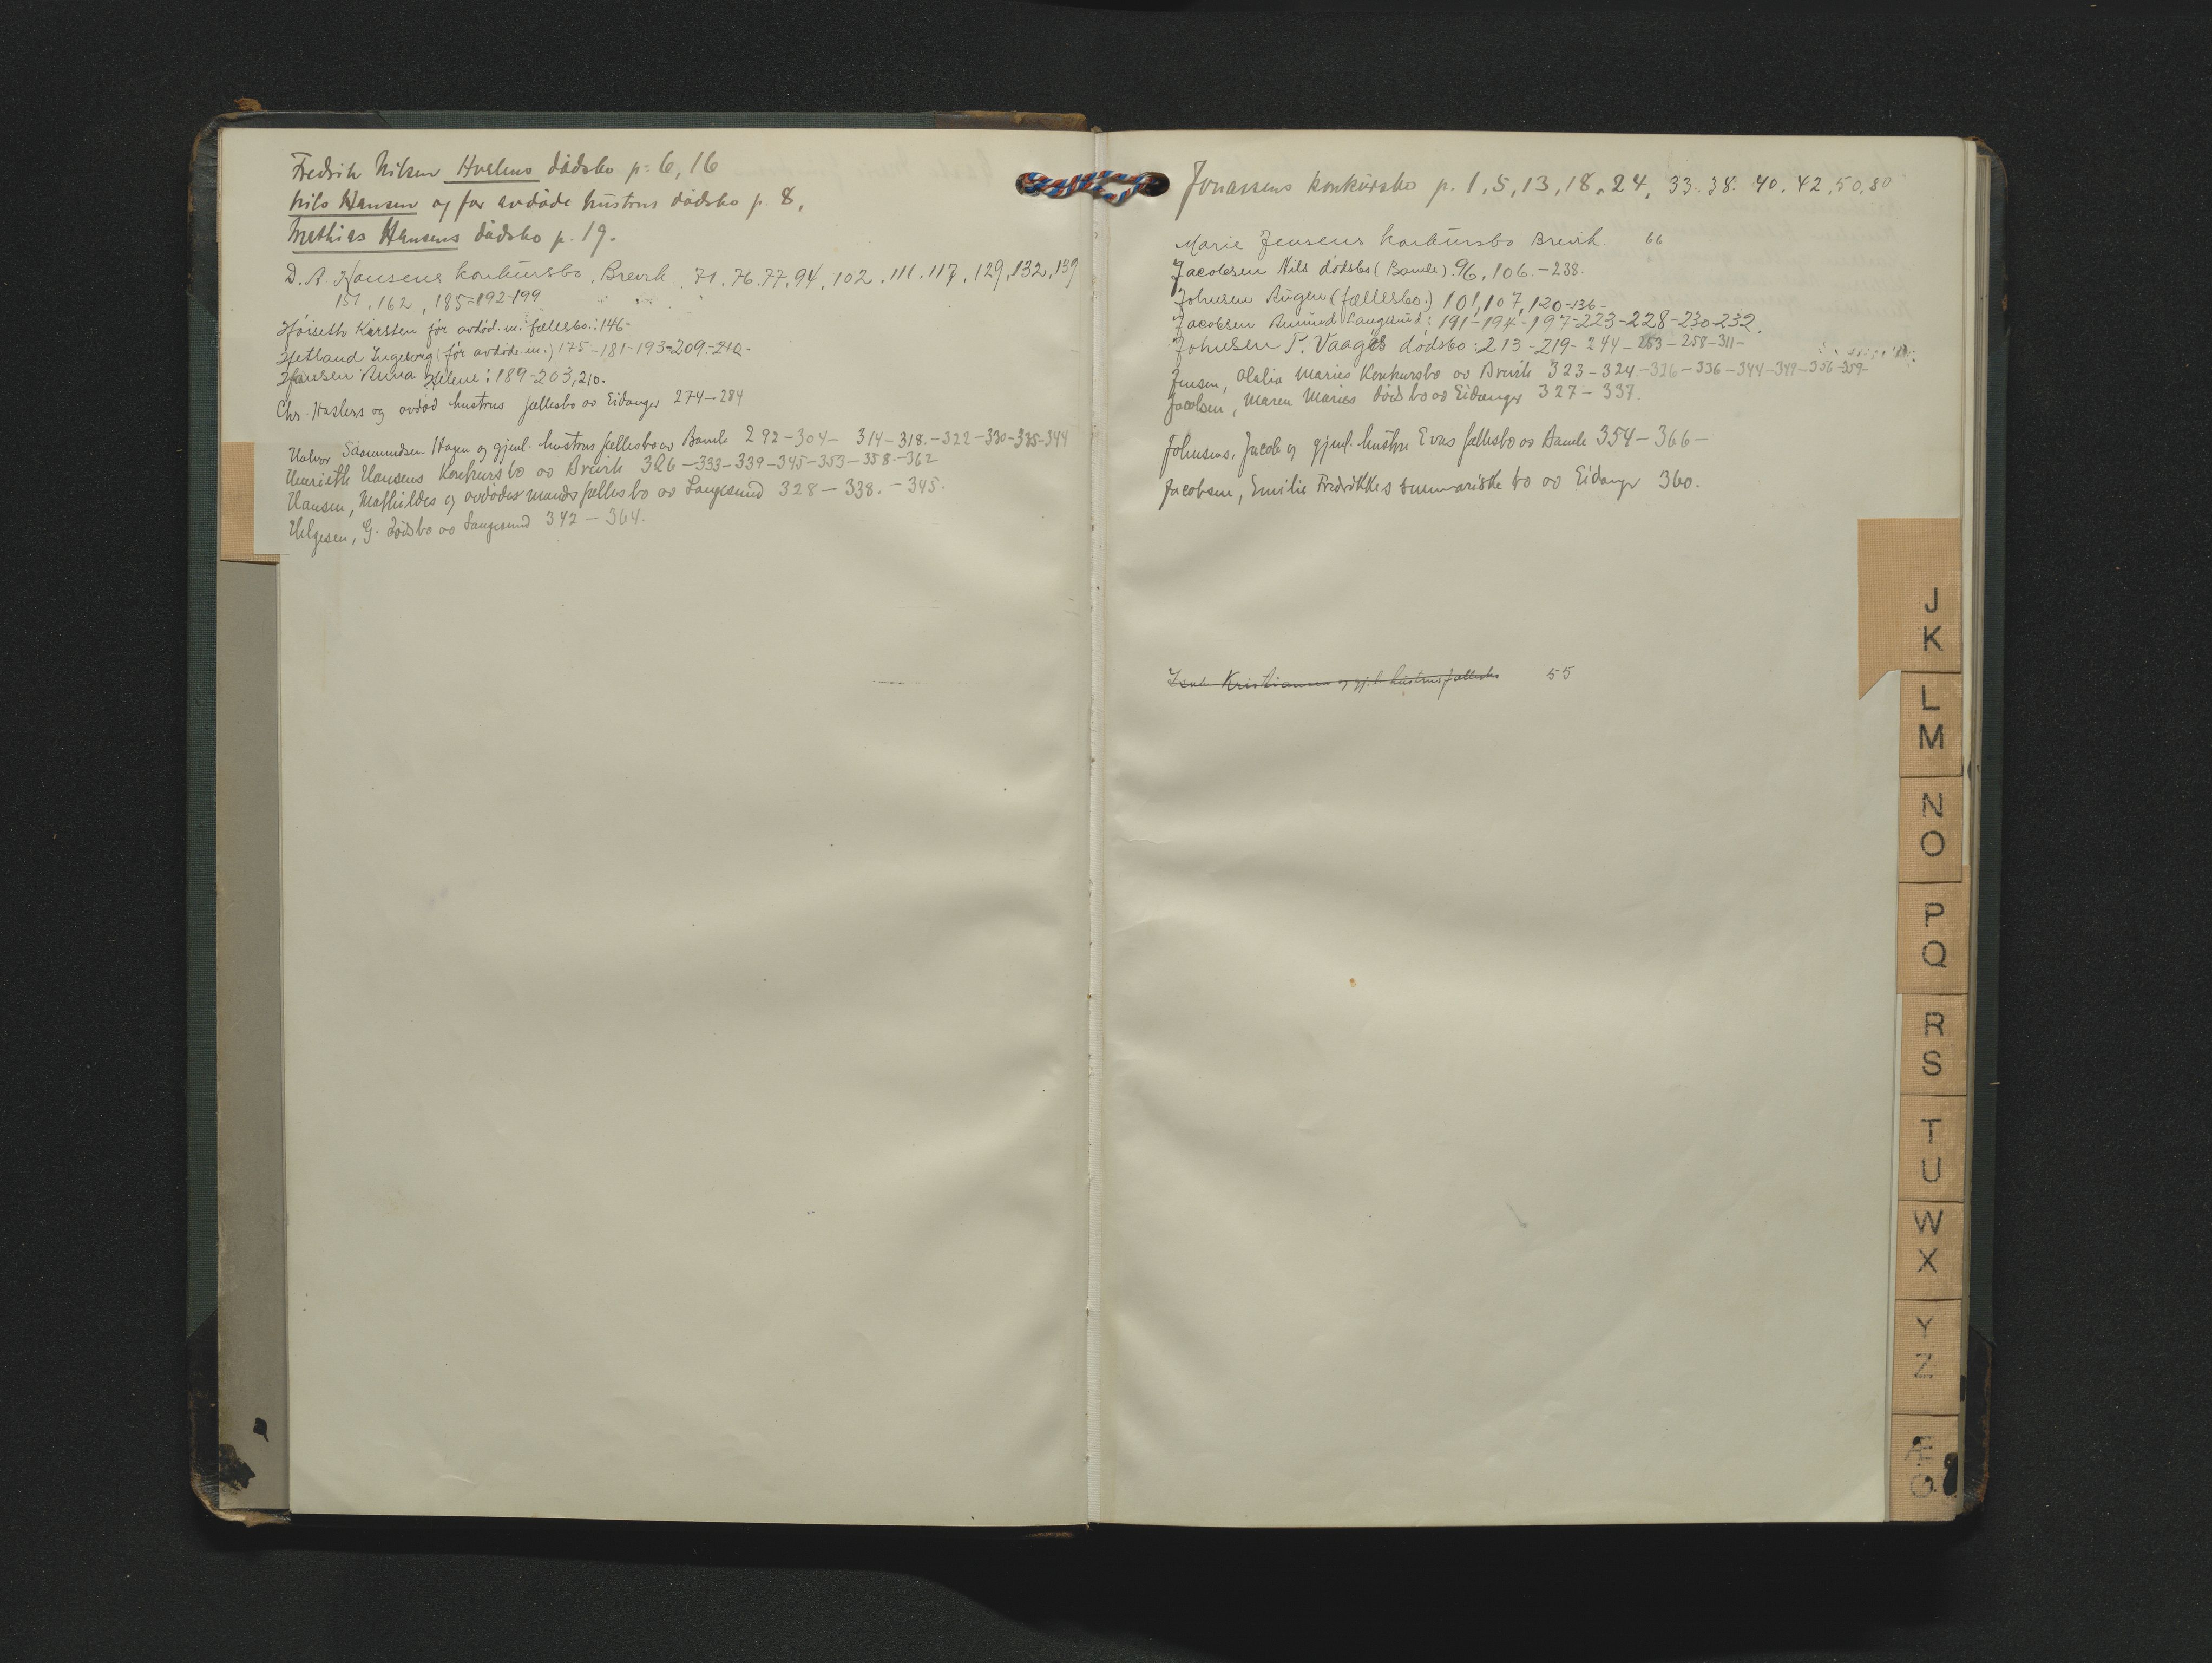 Fredrik Nilsen Hvalens dødsbo p. 6, 16
Nils Hansen og før avdøde hustrus dødsbo p. 8,
Mathias Hansens dødsbo p. 19.
D. A. Hansens konkursbo, Brevik. 71. 76. 77. 94, 102. 111. 117. 129, 132, 139
151, 162, 185-192-199
Høiseth Karsten før avdød. m. fællesbo: 146-
Hetland Ingeborg (før avdøde m.) 175-181-193-209-210-
Hansen Anna Helene: 189-203, 210.
Chr. og avdød hustrus fællesbo av Eidanger 274-284
Halvor Sasmundsen Hagen og gjenl. hustrus fællesbo av Bamle 292-304- 314-318.-322-330-335-344
Henriette Hansens Konkursbo av Brevik 326-333-339-345-353-358.-362
Hansen, Mathildes og avdødes mands fællesbo av Langesund 328-338.-345.
Helgesen, G. dødsbo av Langesund 342-364.
Jonassens konkursbo p. 1, 5, 13, 18, 24, 33. 38. 40. 42, 50, 80
Marie Jensens konkursbo Brevik. 66
Jacobsen Nils dødsbo (Bamle). 96, 106.-238.
Johnsen (fællesbo.) 101, 107, 120-136-
Jacobsen Amund Langesund: 191-194-197-223-228-230-232.
Johnsen P. Vaages dødsbo: 213-219-244-253-258-311-
Jensen, Olalia Maries Konkursbo av Brevik 323-324-326-336-344-349-356-359-
Jacobsen, Maren Maries dødsbo av Eidanger 327-337.
Johnsens, Jacob og gjenl. hustru Evas fællesbo av Bamle 354-366-
Jacobsen, Emilie Fredrikkes summariske bo av Eidanger 360.
Kristiansen og gj.l. hustrus fællesbo 55
J
K
L
M
N
O
P
Q
R
S
T
U
W
X
Y
Z
Æ
Ø